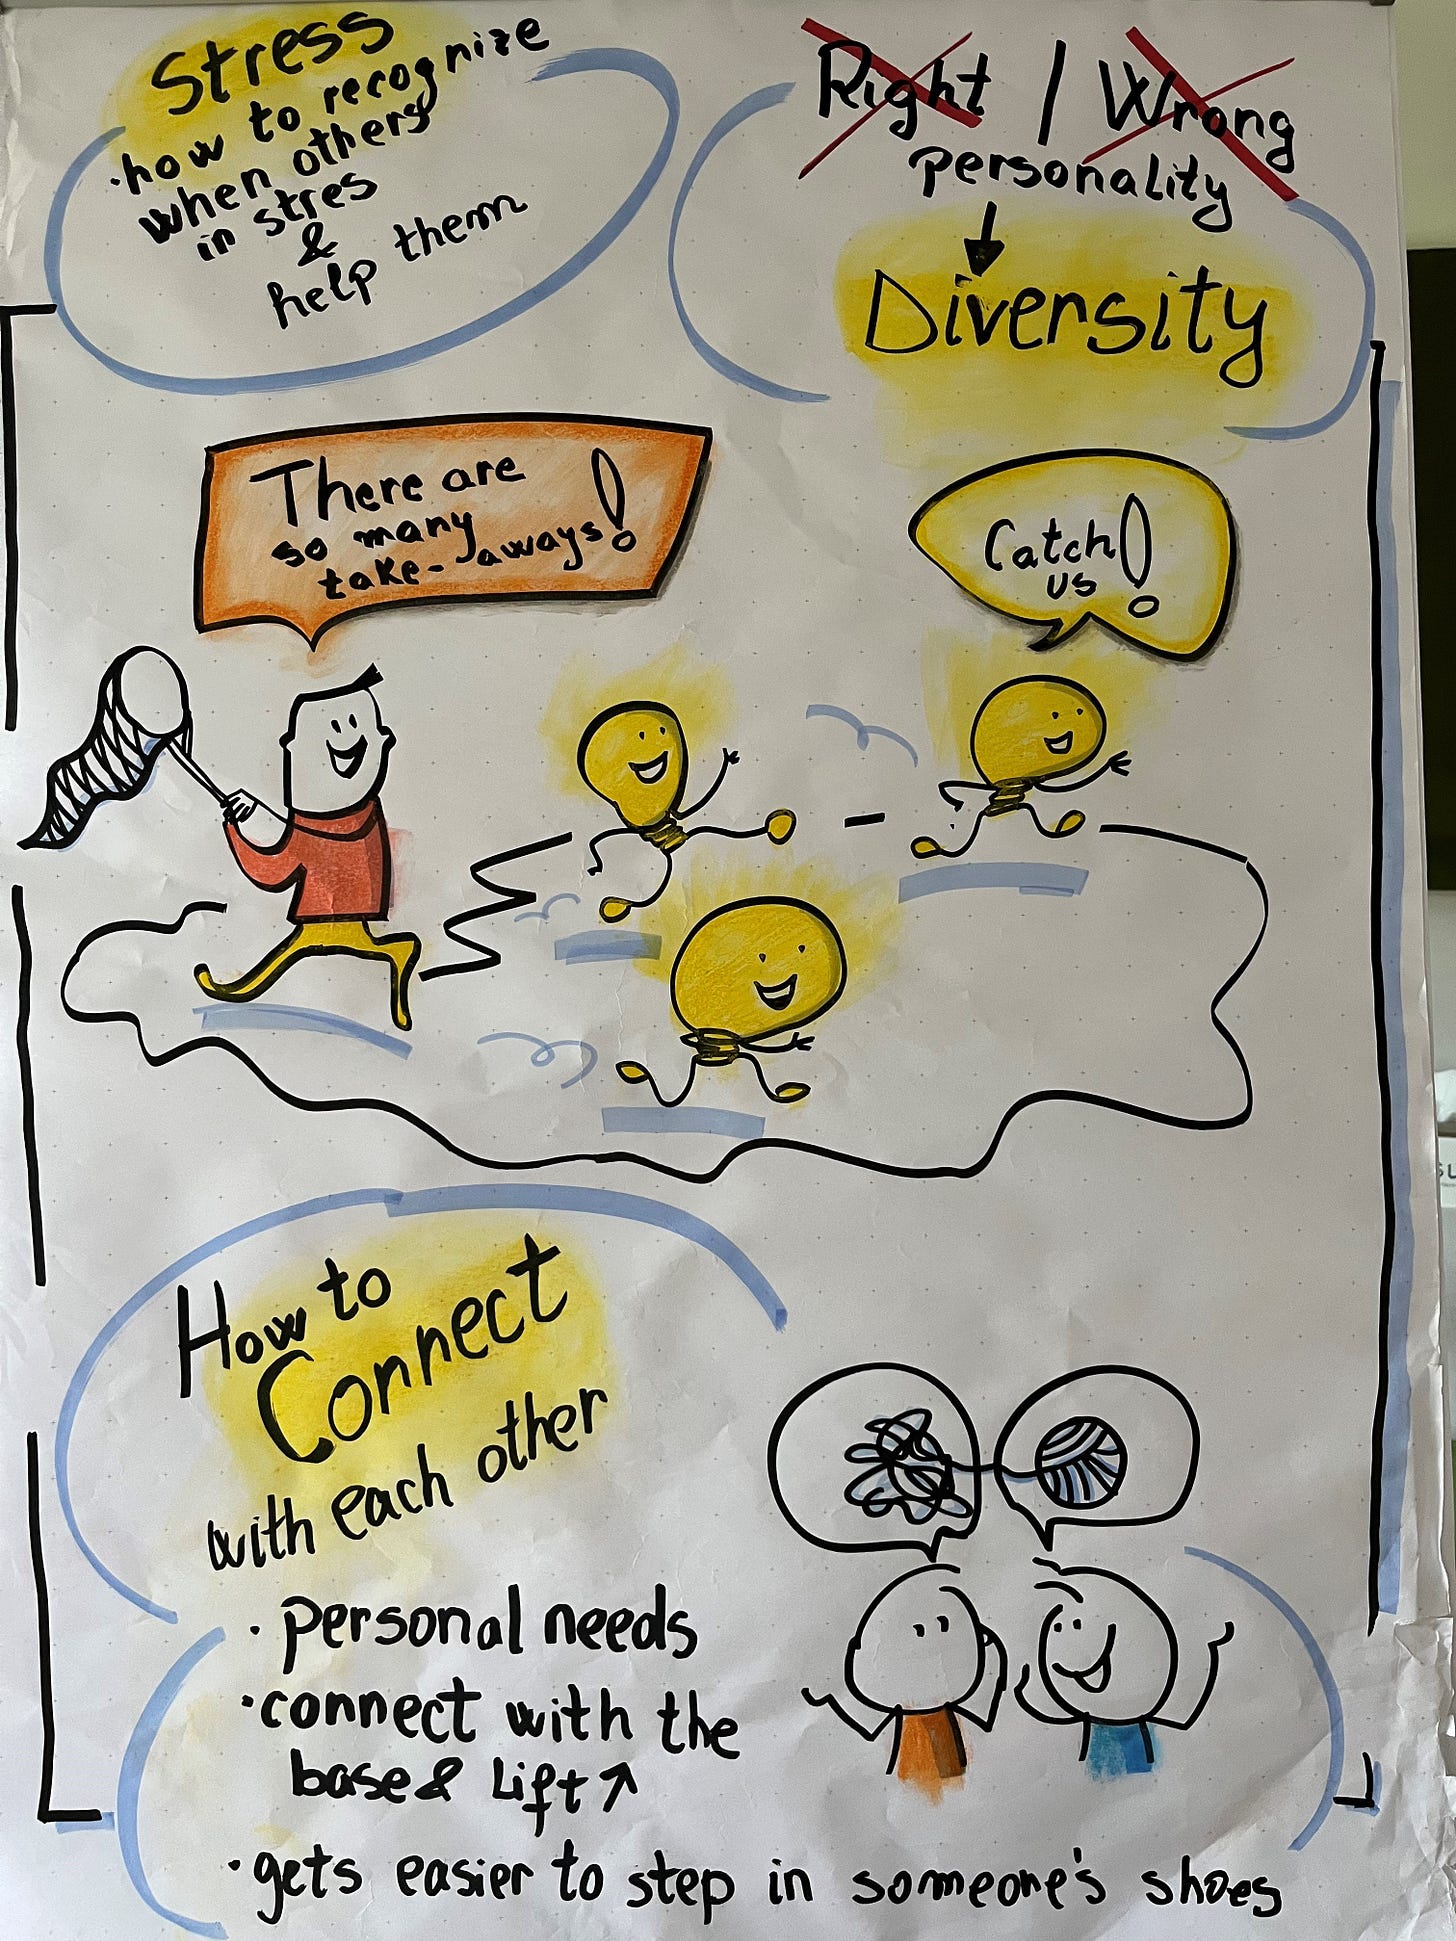 Stress
· how to recognize
when others
in stres
&
help them
Right / Wrong
personality
Diversity
There are
so many
take-aways!
Catch
us!
How to
Connect
with each other
· personal needs
· connect with the
base & Lift ↗
· gets easier to step in someone's shoes